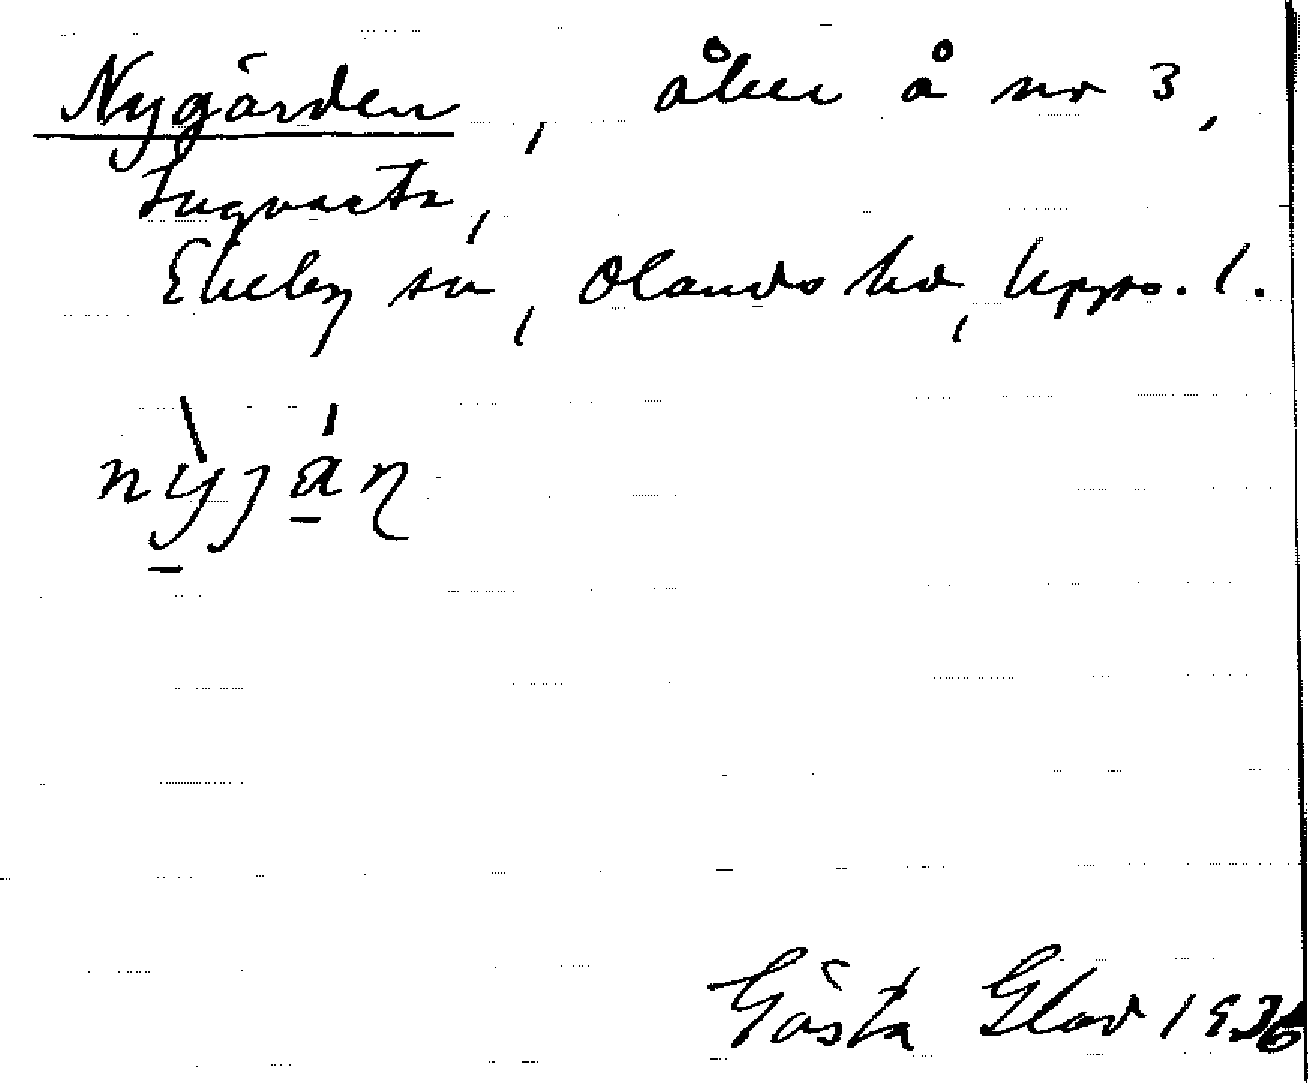 Nygärden, åker å nr 3,
Lugnasta,
Ekeby sn, Olands hd, Upps. l.
nỳjáɳ
Gösta Glad 1936